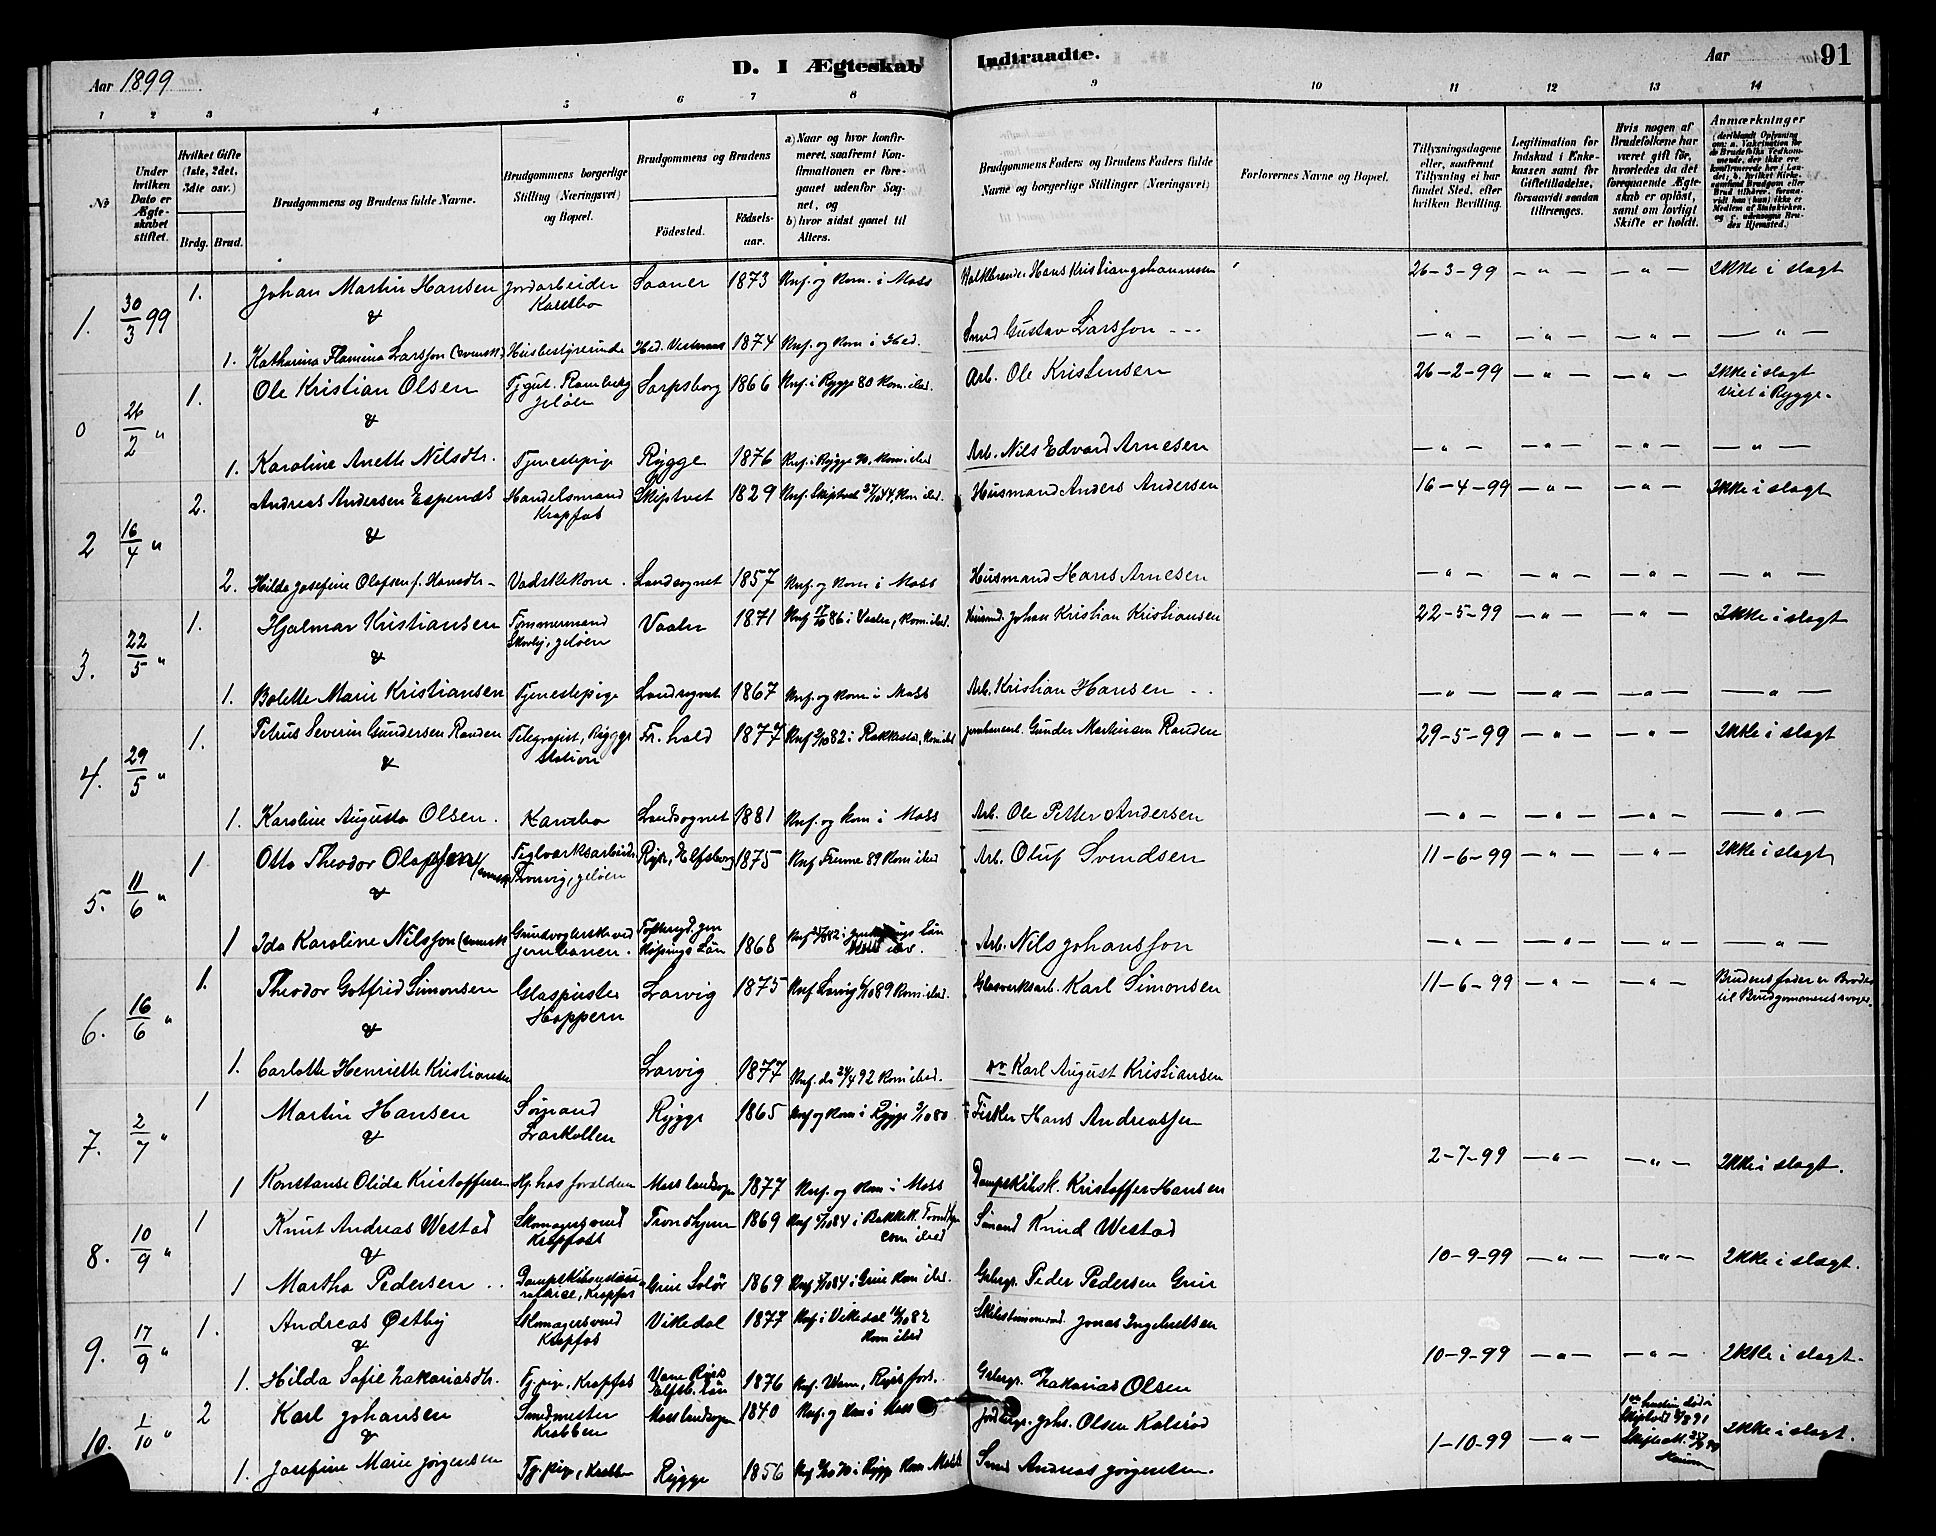 Aar 1899. D. I Ægteskab Indtraadte. Aar 91
1 2 3 4 5 6 7 8 9 10 11 12 13 14
No
Under hvilken Dato er Ægteskabet stiftet.
Hvilket Gifte (1ste, 2det, 3die osv.)
Brdg. Brud.
Brudgommens og Brudens fulde Navne.
Brudgommens borgerlige Stilling (Næringsvei) og Bopæl.
Brudgommens og Brudens
Födested. Födsels-aar.
a) Naar og hvor konfirmeret, saafremt Konfirmationen er foregaaet udenfor Sognet, og
b) hvor sidst gaaet til Alters.
Brudgommens Faders og Brudens Faders fulde Navne og borgerlige Stillinger (Næringsvei)
Forlovernes Navne og Bopæl.
Tillysningsdagene eller, saafremt Tillysning ei har fundet Sted, efter hvilken Bevilling.
Legitimation for Indskud i Enkekassen samt for Giftetilladelse, forsaavidt saadan tiltrænges.
Hvis nogen af Brudefolkene har været gift før, hvorledes da det foregaaende Ægteskab er oplöst, samt om lovligt Skifte er holdt.
Anmærkninger
1. 30/3 99 1. Johan Martin Hansen Jordarbeider Saaner 1873 Knf. og kom. i Moss Kalkbrænder Hans Kristian Johannesen 26-3-99 – " – – " – Ikke i slagt
&
1. Katharina Flamina Larsson (svensk) Husbestyrerinde Hed. 1874 Knf. og kom i Hed. Smed Gustav Larsson – " – – " – – " – – " –
0 26/2 " 1. Ole Kristian Olsen Tjgut. Ramberg Jeløen Sarpsborg 1866 Knf. i Rygge 80 kom. ibd. Arb. Ole Kristensen 26-2-99 – " – – " – Ikke i slagt Viet i Rygge.
&
1. Karoline Anette Nilsdtr. Tjenestepige Rygge 1876 Knf. i Rygge kom. ibd Arb. Nils Edvard Arnesen – " – – " – – " – – " –
2 16/4 " 2. Andreas Andersen Espenæs Handelsmand Krapfos Skiptvet 1829 Knf. Skiptvet 44, kom ibd. Husmand Anders Andersen 16-4-99 – " – – " – Ikke i slagt
&
2. Hilda Josefine Olafsen f. Hansdtr. Vadskekone Landsognet 1857 Knf. og kom i Moss Husmand Hans Arnesen – " – – " – – " – – " –
3. 22/5 " 1. Hjalmar Kristiansen Tømmermand Jeløen Vaaler 1871 Knf 86 i Vaaler, kom. ibd. Husmd. Johan Kristian Kristiansen 22-5-99 – " – – " – Ikke i slagt
&
1. Bolette Marie Kristiansen Tjenestepige Landsognet 1867 Knf. og kom i Moss Arb. Kristian Hansen – " – – " – – " – – " –
4. 29/5 " 1. Petrus Severin Gundersen Rauden Telegrafist, Rygge Station Fr. hald 1877 Knf 82 i Rakkestad, kom ibd Jernbanearb. Gunder Martinsen Rauden 29-5-99 – " – – " – Ikke i slagt
&
1. Karoline Augusta Olsen. Kambo Landsognet 1881 Knf. og kom i Moss Arb. Ole Petter Andersen – " – – " – – " – – " –
5. 11/6 " 1. Otto Theodor Olafsson (svensk) Teglværksarbeider Jeløen Elfsborg 1875 Knf 89 kom ibd Arb. Oluf Svendsen 11-6-99 – " – – " – Ikke i slagt
&
1 Ida Karoline Nilsson (svensk) Grindvogterske ved jernbanen. 1868 Arb. Nils Johansson – " – – " – – " – – " –
6. 16/6 " 1. Theodor Gotfrid Simonsen Glaspuster Hoppern Larvig 1875 Knf Larvig 89 kom. ibd. Glasverksarb. Karl Simonsen 11-6-99 – " – – " – Brudens fader er Broder til Brudgommens
&
1. Carlotte Henriette Kristiansen Larvig 1877 Knf. do 24/4 92 kom ibd. do Karl August Kristiansen
7. 2/7 " 1 Martin Hansen Sømand Larkollen Rygge 1865 Knf og kom i Rygge 80 Fisker Hans Andreassen
&
2-7-99 – " – – " – Ikke i slagt.
1 Konstanse Olida Kristoffersen Hj. hos forældrene Moss landsogn 1877 Knf. og kom i Moss Dampskibsk. Kristoffer Hansen
8. 10/9 " 1 Knut Andreas Westad Skomagersvend Krapfoss Trondhjem 1869 Knf 84 i Bakkek. Trondhjem kom ibd Sømand Knud Westad
&
10-9-99 – " – – " – Ikke i slagt.
1 Martha Pedersen Krapfos Grue Solør 1869 Knf 84 i Grue kom ibd. Grbrgr. Peder Pedersen Grue
9. 17/9 " 1. Andreas Østby Skomagersvend Krapfos Vikedal 1877 Knf i Vikedal kom ibd Skibstømmermd. Jonas Ingebretsen
&
10-9-99 – " – – " – Ikke i slagt.
1. Hilda Sofie Zakariasdtr. Tj. pige, Krapfos 1876 Grbrgr. Zakarias Olsen
10. 1/10 " 2 Karl Johansen Smedmester Krabben Moss landsogn 1840 Knf. og kom i Moss Johs. Olsen Kalsrød
&
1-10-99 – " – Ikke i slagt.
1. Josefine Marie Jørgensen Tj. pige, Krabben Rygge 1856 Knf i Rygge kom Moss Smed Andreas Jørgensen.